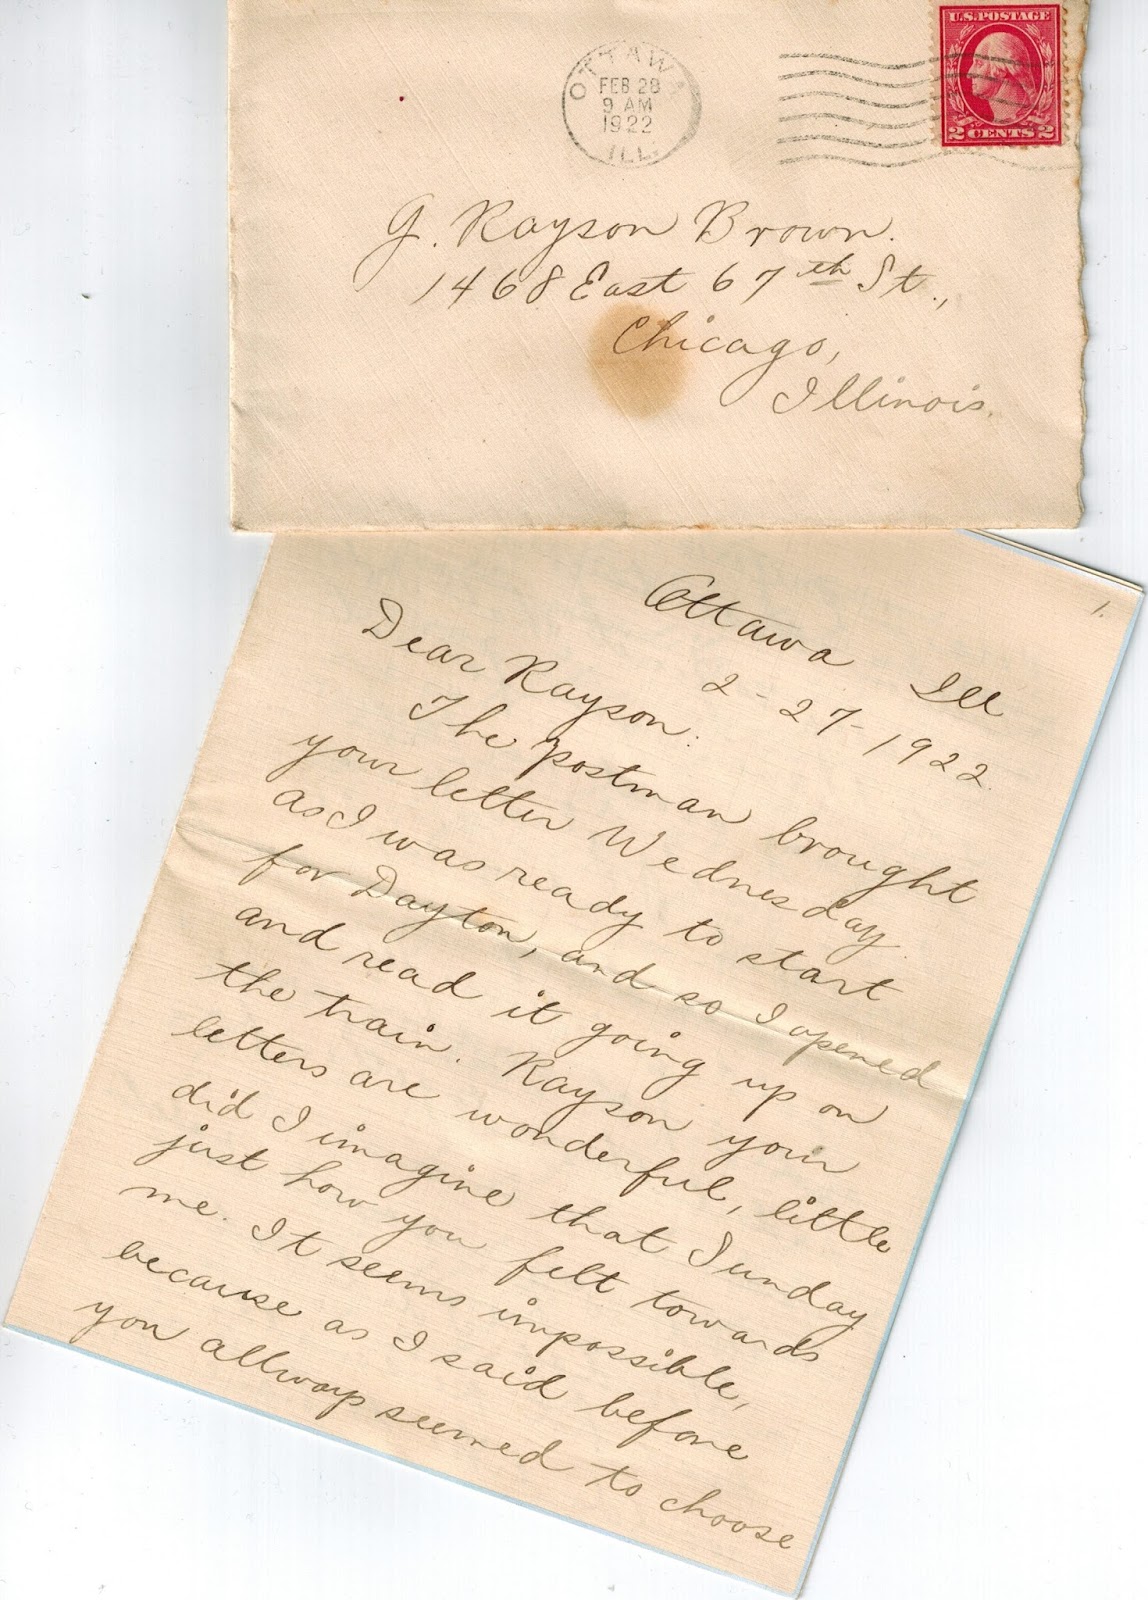 U.S. POSTAGE
2 CENTS 2
OTTAWA
FEB 28
9 AM
1922
ILL.
G. Rayson Brown.
1468 East 67th St.,
Chicago,
Illinois.
1.
Ottawa Ill
2-27-1922.
Dear Rayson:
The postman brought
your letter Wednesday
as I was ready to start
for Dayton, and so I opened
and read it going up on
the train. Rayson your
letters are wonderful, little
did I imagine that Sunday
just how you felt towards
me. It seems impossible,
because as I said before
you allways seemed to choose